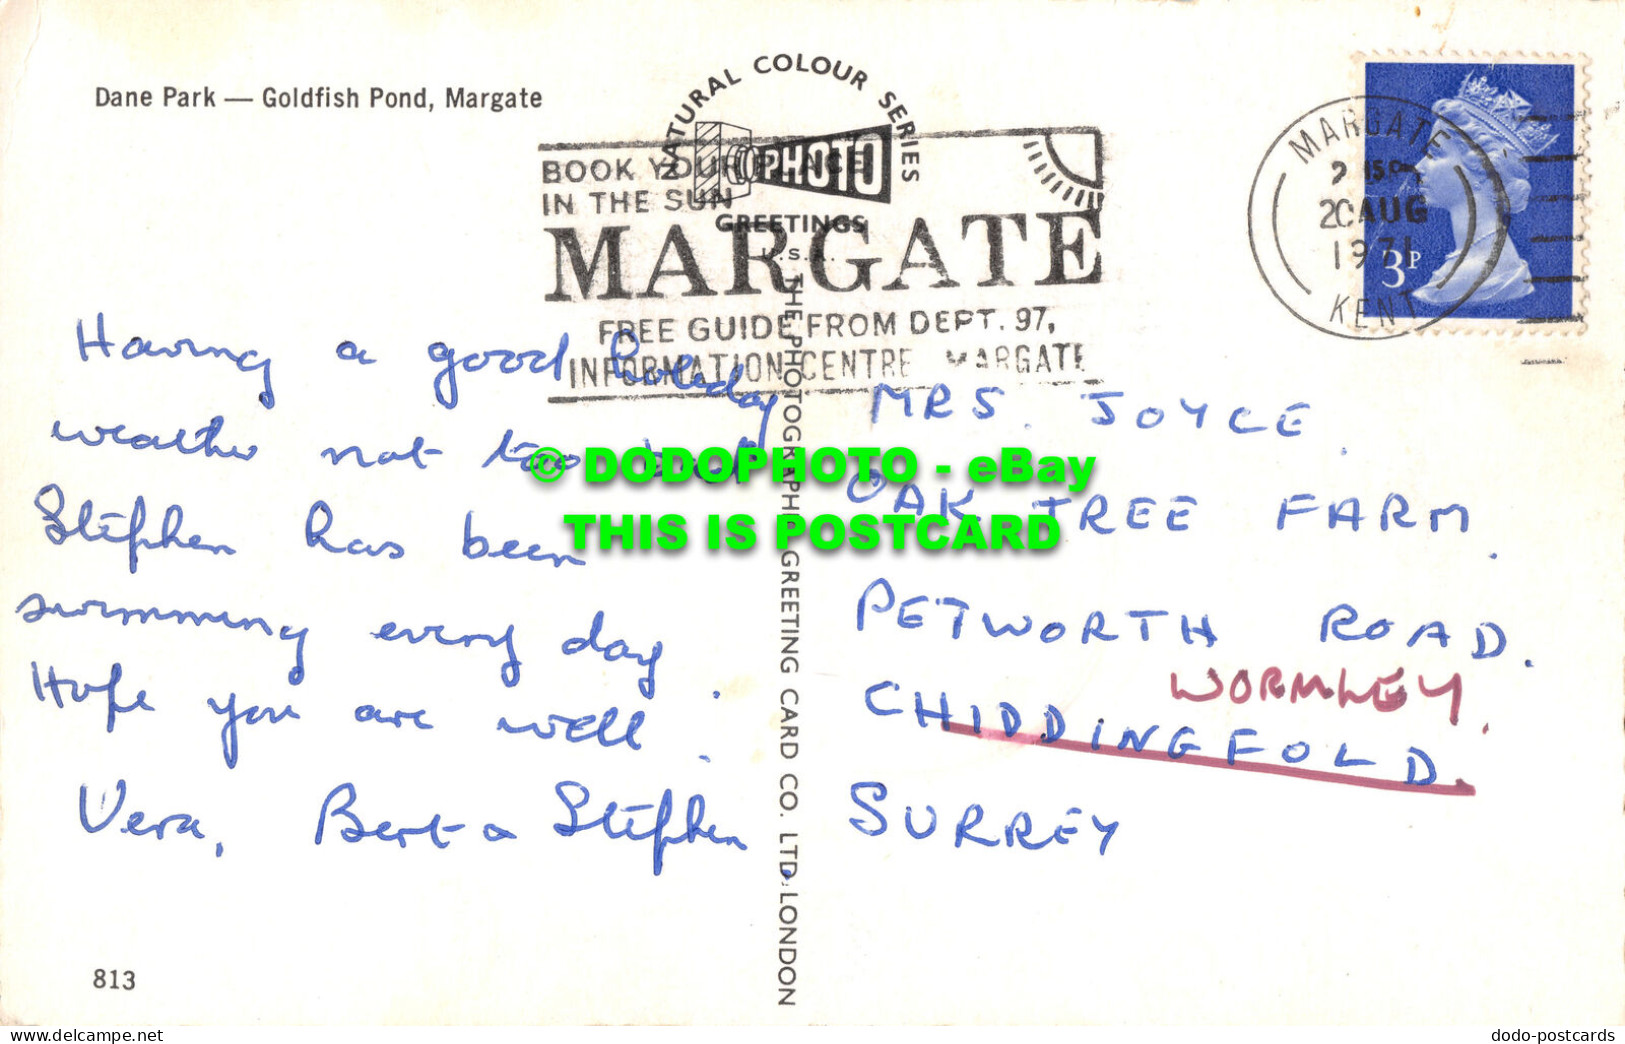 Dane Park — Goldfish Pond, Margate
NATURAL COLOUR SERIES
PHOTO
GREETINGS
U.S.A.
BOOK YOUR PLACE
IN THE SUN
MARGATE
FREE GUIDE FROM DEPT. 97,
INFORMATION CENTRE MARGATE
MARGATE
20 AUG
1971
KENT
3P
Having a good holiday
weather not too bad
Stephen has been
swimming every day
Hope you are well.
Vera, Bert & Stephen
813
THE PHOTOGRAPHIC GREETING CARD CO. LTD. LONDON
MRS. JOYCE.
OAK TREE FARM.
PETWORTH ROAD.
WORMLEY.
CHIDDINGFOLD.
SURREY
© DODOPHOTO - eBay
THIS IS POSTCARD
http://www.delcampe.net
dodo-postcards